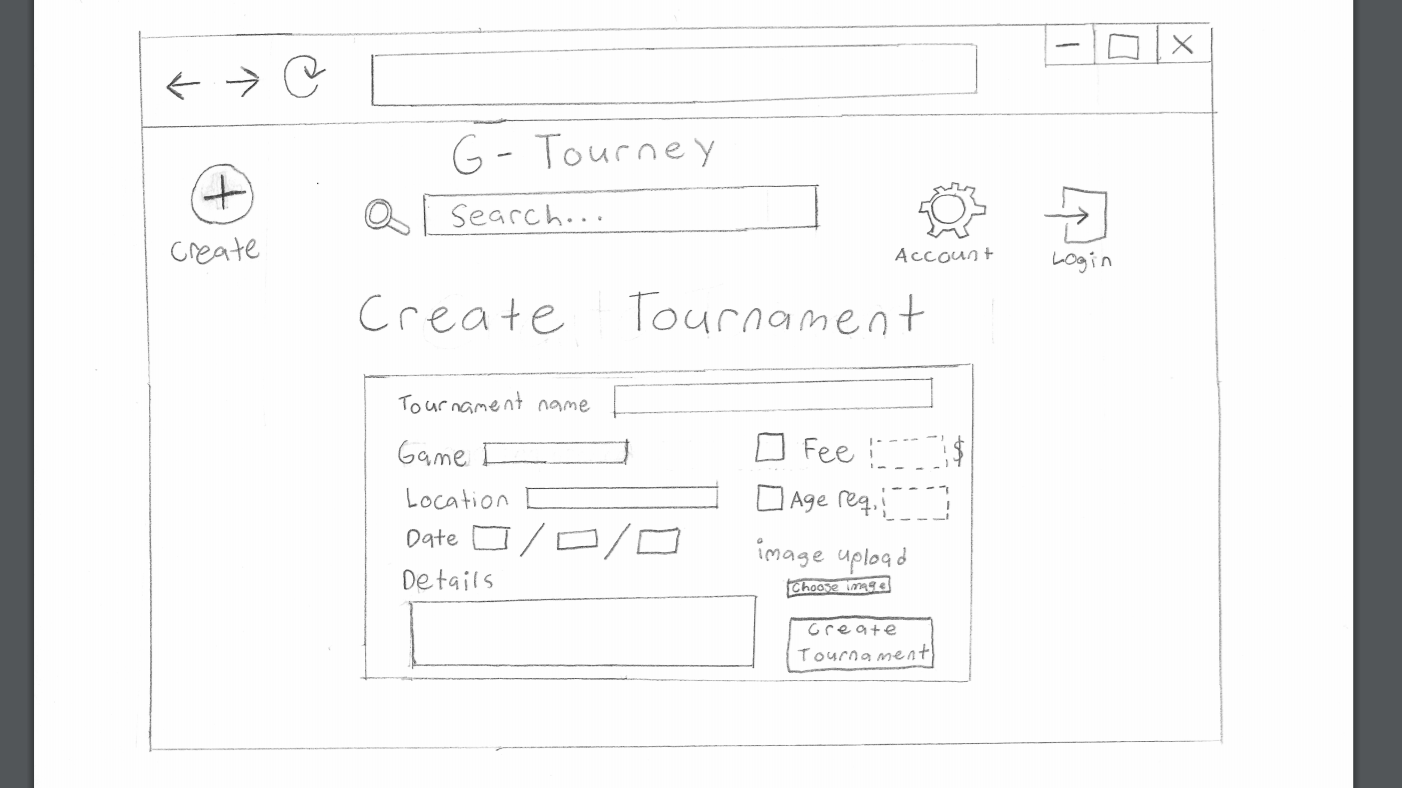 G - Tourney
Search...
Create
Account
Login
Create Tournament
Tournament name
Game
Fee $
Location
Age req.
Date / /
image upload
Details
Choose image
Create
Tournament